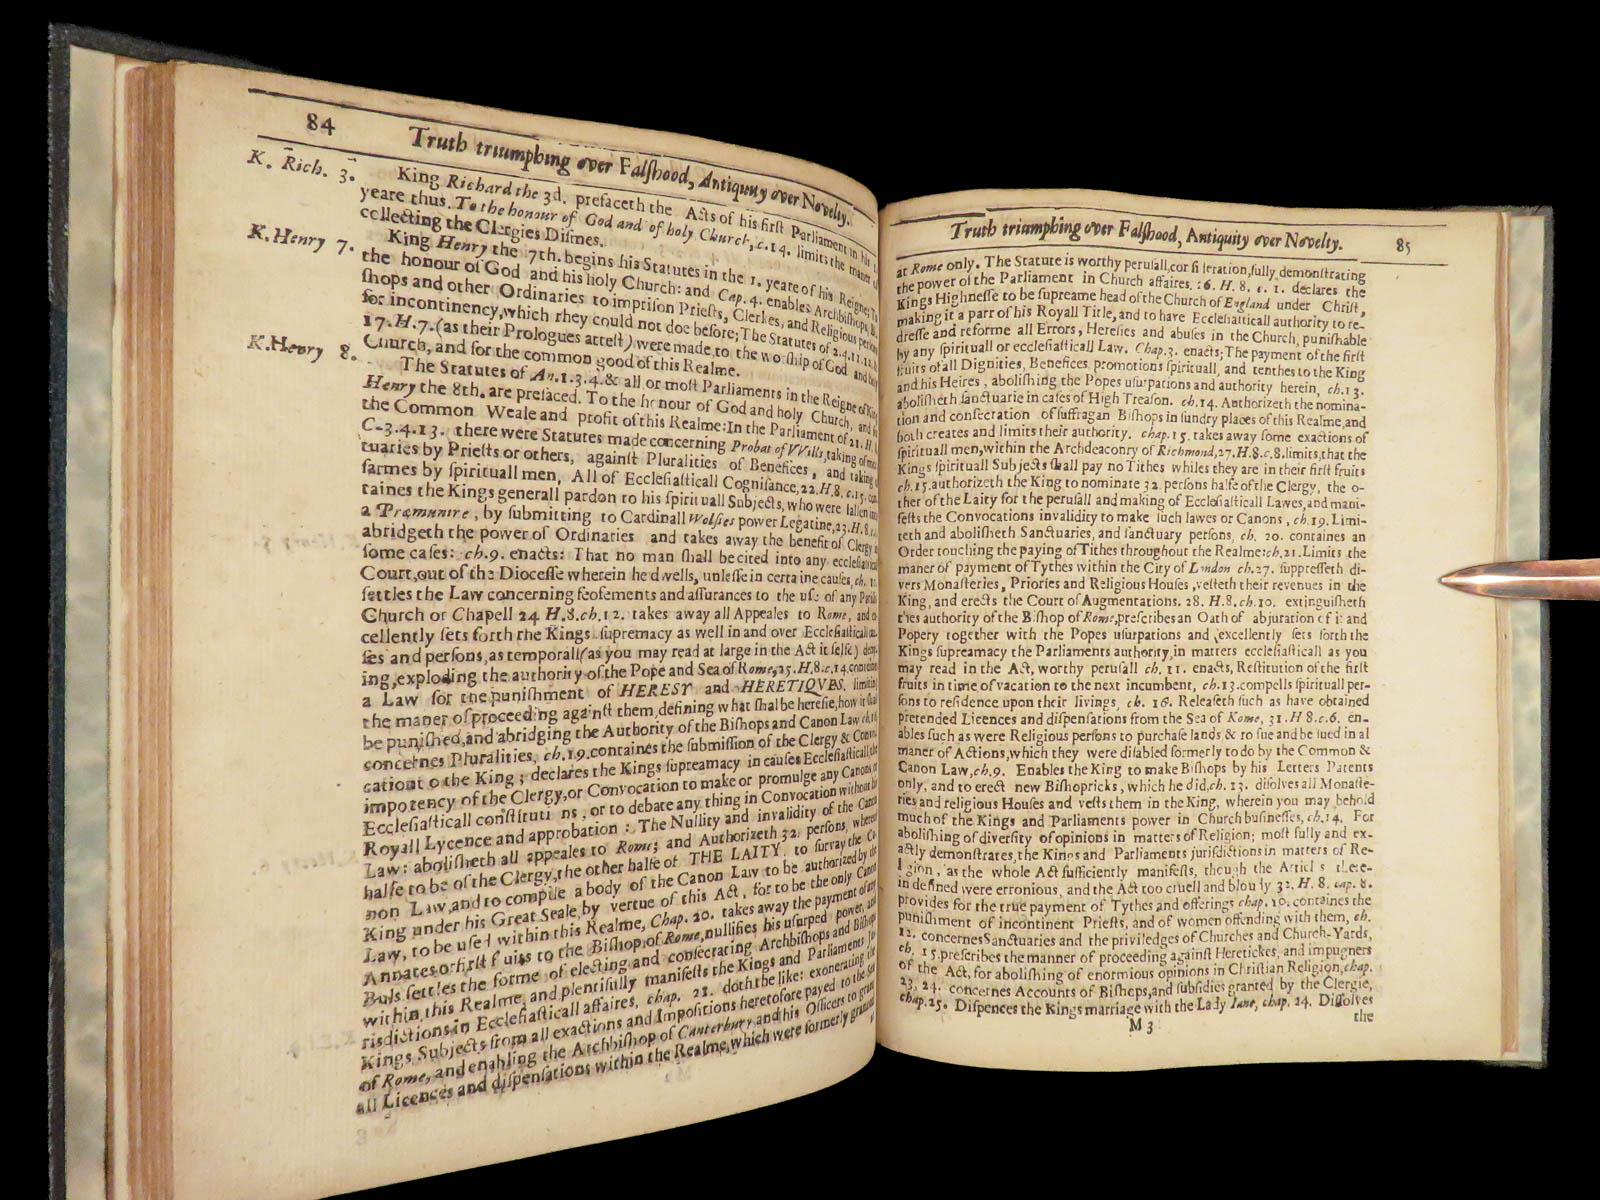 84
Truth triumphing over Falſhood, Antiquity over Novelty.
K. Rich. 3.
King Richard the 3d. prefaceth the Acts of his firſt Parliament in his 1.
yeare thus. To the honour of God and of holy Church, c. 14. limits the maner of
collecting the Clergies Diſmes.
K. Henry 7.
King Henry the 7th. begins his Statutes in the 1. yeare of his Reigne; To
the honour of God and his holy Church: and Cap. 4. enables Archbiſhops, Bi-
ſhops and other Ordinaries to impriſon Prieſts, Clerkes, and Religious perſons
for incontinency, which rhey could not doe before; The Statutes of 2.4.11.12.
17.H.7. (as their Prologues atteſt) were made, to the worſhip of God and holy
Church, and for the common good of this Realme.
K.Henry 8.
The Statutes of An.1.3.4.& all or moſt Parliaments in the Reigne of King
Henry the 8th. are prefaced. To the honour of God and holy Church, and for
the Common Weale and profit of this Realme: In the Parliament of 21. H.
C-3.4.13. there were Statutes made concerning Probat of VVills, taking of
tuaries by Prieſts or others, againſt Pluralities of Benefices, and taking
farmes by ſpirituall men, All of Eccleſiaſticall Cogniſance, 22.H.8. c.15. con-
taines the Kings generall pardon to his ſpirituall Subjects, who were fallen into
a Præmunire, by ſubmitting to Cardinall Wolſies power Legatine, 23.H.8.
abridgeth the power of Ordinaries and takes away the benefit of Clergy in
ſome caſes: ch.9. enacts: That no man ſhall be cited into any eccleſiaſticall
Court, out of the Dioceſſe wherein he dwells, unleſſe in certaine cauſes, ch.
ſettles the Law concerning feofements and aſſurances to the uſe of any Pariſh
Church or Chapell 24 H.8.ch.12. takes away all Appeales to Rome, and ex-
cellently ſets forth the Kings ſupremacy as well in and over Eccleſiaſticall cau-
ſes and perſons, as temporall (as you may read at large in the Act it ſelfe) deny-
ing, exploding the authority of the Pope and Sea of Rome, 25.H.8.c.14. containes
a Law for the puniſhment of HERESY and HERETIQVES, limiting
the maner of proceeding againſt them, defining what ſhal be hereſie, how it ſhal
be puniſhed, and abridging the Authority of the Biſhops and Canon Law ch.16.
concernes Pluralities, ch.19. containes the ſubmiſſion of the Clergy & Convo-
cation to the King; declares the Kings ſupreamacy in cauſes Eccleſiaſticall, the
impotency of the Clergy, or Convocation to make or promulge any Canons or
Eccleſiaſticall conſtituti ns, or to debate any thing in Convocation without his
Royall Lycence and approbation: The Nullity and invalidity of the Canon
Law: aboliſheth all appeales to Rome; and Authorizeth 32. perſons, whereof
halfe to be of the Clergy, the other halfe of THE LAITY, to ſurvay the Ca-
non Law, and to compile a body of the Canon Law to be authorized by the
King under his Great Seale, by vertue of this Act, for to be the only Canon
Law, to be uſed within this Realme, Chap. 20. takes away the payment of any
Annates or firſt fruits to the Biſhop of Rome, nullifies his uſurped power, and
Buls ſettles the forme of electing and conſecrating Archbiſhops and Biſhops
within this Realme, and plentifully manifeſts the Kings and Parliaments Ju-
risdictions in Eccleſiaſticall affaires, chap. 21. doth the like: exonerating the
Kings Subjects from all exactions and Impoſitions heretofore payed to the Sea
of Rome, and enabling the Archbiſhop of Canterbury and his Officers to grant
all Licences and diſpenſations within the Realme, which were formerly granted
Truth triumphing over Falſhood, Antiquity over Novelty.
85
at Rome only. The Statute is worthy peruſall, conſideration, fully demonſtrating
the power of the Parliament in Church affaires. 26. H. 8. c. 1. declares the
Kings Highneſſe to be ſupreame head of the Church of England under Chriſt,
making it a part of his Royall Title, and to have Eccleſiaſticall authority to re-
dreſſe and reforme all Errors, Hereſies and abuſes in the Church, puniſhable
by any ſpirituall or eccleſiaſticall Law. Chap.3. enacts; The payment of the firſt
fruits of all Dignities, Benefices, promotions ſpirituall, and tenthes to the King
and his Heires, aboliſhing the Popes uſurpations and authority herein, ch.13.
aboliſheth ſanctuarie in caſes of High Treaſon. ch.14. Authorizeth the nomina-
tion and conſecration of ſuffragan Biſhops in ſundry places of this Realme, and
both creates and limits their authority. chap.15. takes away ſome exactions of
ſpirituall men, within the Archdeaconry of Richmond, 27.H.8.c.8. limits, that the
Kings ſpirituall Subjects ſhall pay no Tithes whiles they are in their firſt fruits
ch.15. authorizeth the King to nominate 32. perſons halfe of the Clergy, the o-
ther of the Laity for the peruſall and making of Eccleſiaſticall Lawes, and mani-
feſts the Convocations invalidity to make ſuch lawes or Canons, ch.19. Limi-
teth and aboliſheth Sanctuaries, and ſanctuary perſons, ch. 20. containes an
Order touching the paying of Tithes throughout the Realme: ch.21. Limits the
maner of payment of Tythes within the City of London ch.27. ſuppreſſeth di-
vers Monaſteries, Priories and Religious Houſes, veſteth their revenues in the
King, and erects the Court of Augmentations. 28. H.8.ch.10. extinguiſheth
the authority of the Biſhop of Rome, preſcribes an Oath of abjuration of it and
Popery together with the Popes uſurpations and excellently ſets forth the
Kings ſupreamacy the Parliaments authority, in matters eccleſiaſticall as you
may read in the Act, worthy peruſall ch. 11. enacts, Reſtitution of the firſt
fruits in time of vacation to the next incumbent, ch.13. compells ſpirituall per-
ſons to reſidence upon their livings, ch. 16. Releaſeth ſuch as have obtained
pretended Licences and diſpenſations from the Sea of Rome, 31.H 8.c.6. en-
ables ſuch as were Religious perſons to purchaſe lands & to ſue and be ſued in al
maner of Actions, which they were diſabled formerly to do by the Common &
Canon Law, ch.9. Enables the King to make Biſhops by his Letters Patents
only, and to erect new Biſhopricks, which he did, ch. 13. diſolves all Monaſte-
ries and religious Houſes and veſts them in the King, wherein you may behold
much of the Kings and Parliaments power in Church buſineſſes, ch.14. For
aboliſhing of diverſity of opinions in matters of Religion; moſt fully and ex-
actly demonſtrates, the Kings and Parliaments juriſdiction in matters of Re-
ligion, as the whole Act ſufficiently manifeſts, though the Articl s there-
in defined were erronious, and the Act too cruell and bloudy 32. H. 8. cap. 8.
provides for the true payment of Tythes and offerings chap. 10. containes the
puniſhment of incontinent Prieſts, and of women offending with them, ch.
12. concernes Sanctuaries and the priviledges of Churches and Church-Yards,
ch. 15. preſcribes the manner of proceeding againſt Heretickes, and impugners
of the Act, for aboliſhing of enormious opinions in Chriſtian Religion, chap.
23, 24. concernes Accounts of Biſhops, and ſubſidies granted by the Clergie,
chap.25. Diſpences the Kings marriage with the Lady Iane, chap. 24. Diſſolves
M 3
the